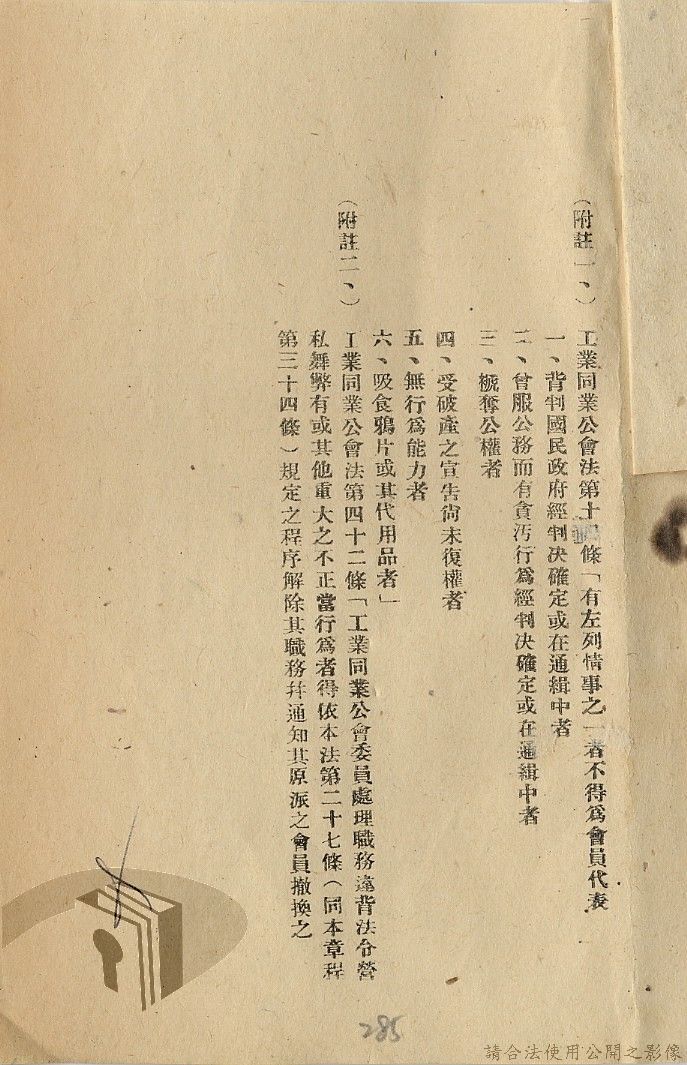 （附註一、）
工業同業公會法第十四條「有左列情事之一者不得爲會員代表
一、背判國民政府經判決確定或在通緝中者
二、曾服公務而有貪汚行爲經判決確定或在通緝中者
三、褫奪公權者
四、受破產之宣告尙未復權者
五、無行爲能力者
六、吸食鴉片或其代用品者」
（附註二、）
工業同業公會法第四十二條「工業同業公會委員處理職務違背法令營
私舞弊有或其他重大之不正當行爲者得依本法第二十七條（同本章程
第三十四條）規定之程序解除其職務幷通知其原派之會員撤換之
285
請合法使用公開之影像